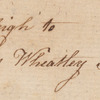 igh to
Wheatley